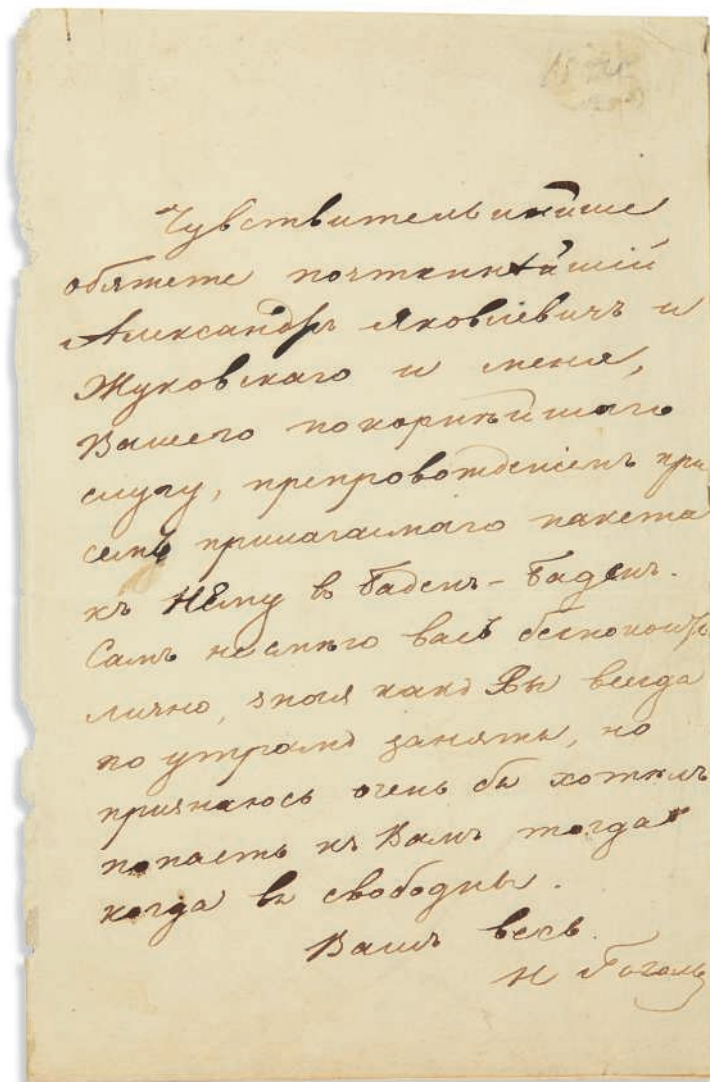 Чувствительнѣйше
обяжете почтеннѣйшій
Александръ Яковлевичъ и
Жуковскаго и меня,
Вашего покорнѣйшаго
слугу, препровожденіемъ при
семъ прилагаемаго пакета
къ Нему в Баденъ-Баденъ.
Самъ не смѣю васъ безпокоить
лично, зная какъ Вы всегда
по утрамъ заняты, но
признаюсь очень бы хотѣлъ
попасть къ Вамъ тогда
когда вы свободны.
Вашъ весь.
Н Гоголь